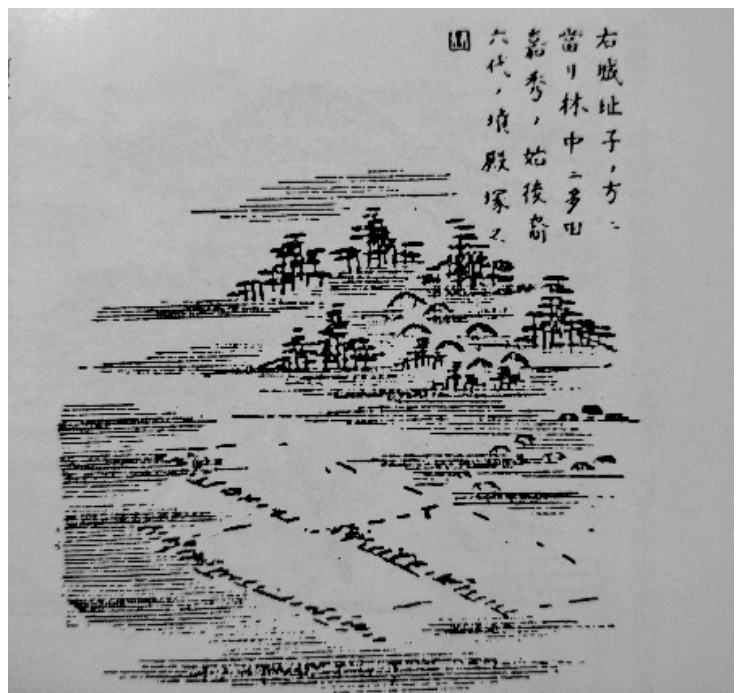 右城址子ノ方ニ
當リ林中ニ多田
嘉秀ノ始後裔
六代ノ墳殿塚之
圖